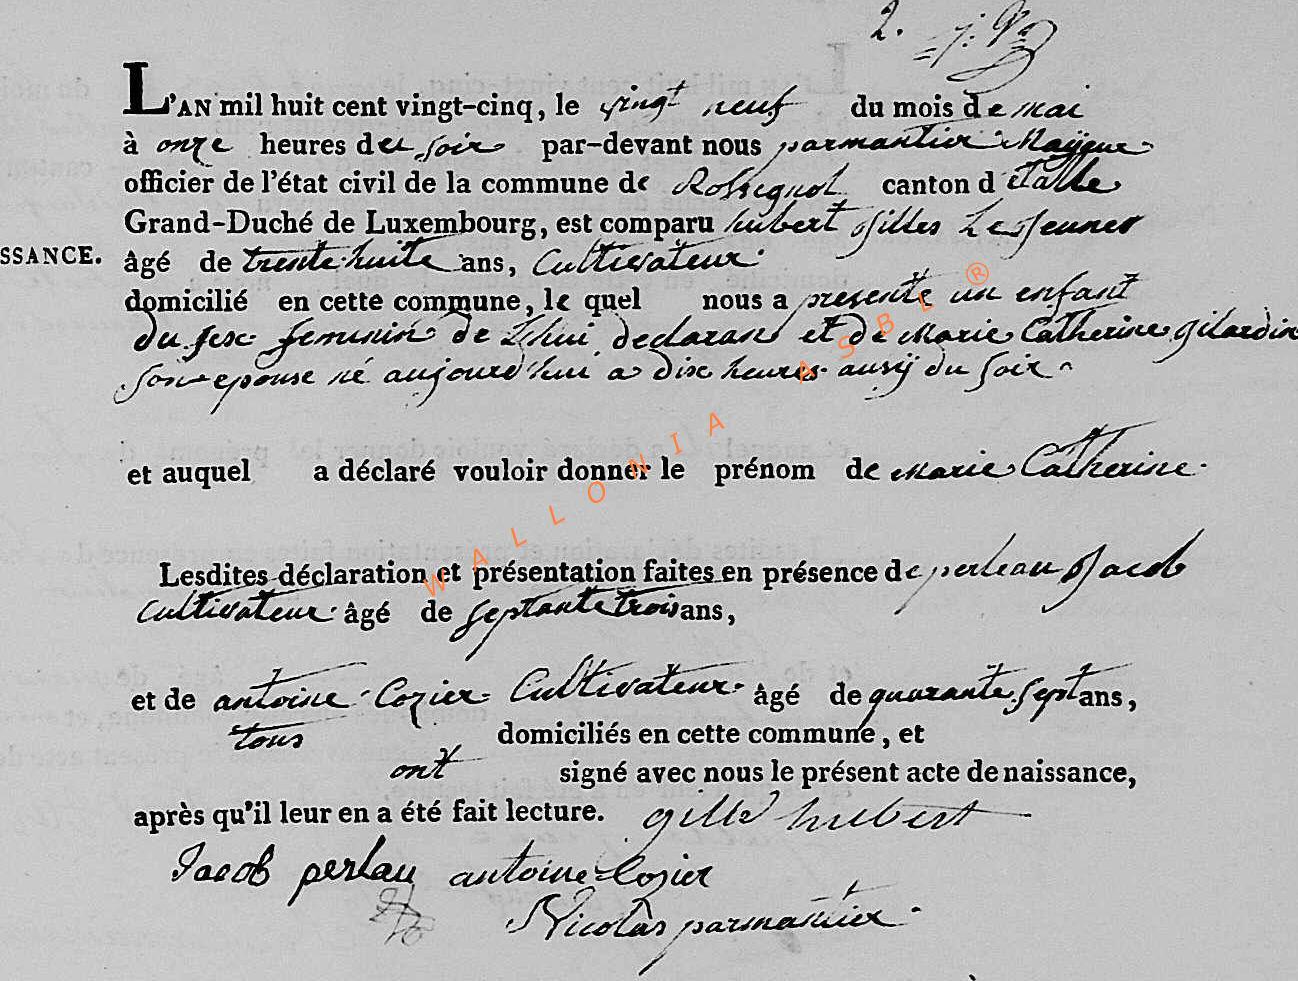 2.
L'AN mil huit cent vingt-cinq, le vingt neuf du mois de mai
à onze heures du soir par-devant nous parmantier Mayeur
officier de l'état civil de la commune de Rossignol canton d'étalle
Grand-Duché de Luxembourg, est comparu hubert Gilles Le Jeune
SSANCE. âgé de trente huite ans, Cultivateur
domicilié en cette commune, le quel nous a presenté un enfant
du sex feminin de Lhui declarant et de Marie Catherine gilardin
son epouse né aujourd'hui a dix heures aussy du soir
et auquel a déclaré vouloir donner le prénom de Marie Catherine.
Lesdites déclaration et présentation faites en présence de perleau Jacob
Cultivateur âgé de septante trois ans,
et de antoine Cozier Cultivateur âgé de quarante sept ans,
tous domiciliés en cette commune, et
ont signé avec nous le présent acte de naissance,
après qu'il leur en a été fait lecture. gille hubert
Jacob perlau antoine Cozier
Nicolas parmantier
WALLONIA ASBL ®